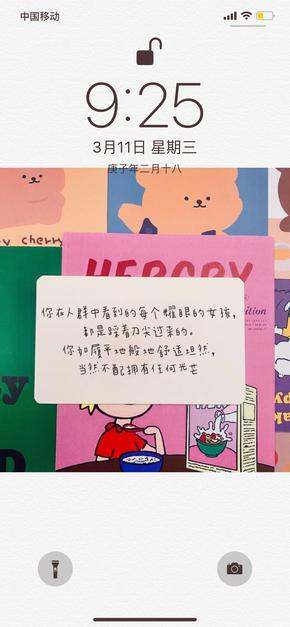 中国移动
9:25
3月11日 星期三
庚子年二月十八
y cherry
HEROBY
你在人群中看到的每个耀眼的女孩,
都是踩着刀尖过来的。
你如履平地般地舒适坦然,
当然不配拥有任何光芒